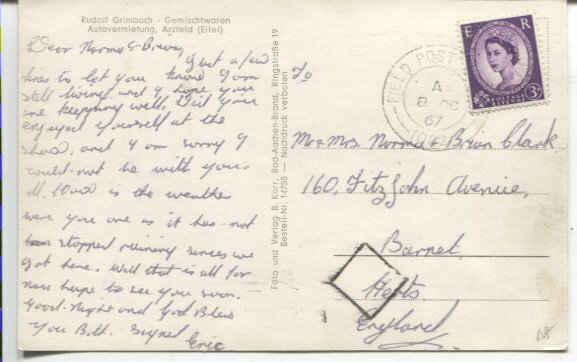 Rudolf Grimbach - Gemischtwaren
Autovermietung, Arzfeld (Eifel)
Dear Norma & Brian,
Just a few
lines to let you know I am
still living and I hope you
are keepning well. Did you
enjoyed yourself at the
show, and I am sorry I
could not be with you's
all. How is the weather
were you are as it has not
stopped raining senses we
got here. Well that is all for
now hope to see you soon.
Good-Night and God Bless
You Both. Signed
Eric
Foto und Verlag B. Korr, Bad-Aachen-Brand, Ringstraße 19
Bestell-Nr. 14758 — Nachdruck verboten
E R
POSTAGE
3D
FIELD POST
A
8
67
To
Mr & Mrs Norma & Brian Clark
160, FitzJohn Avenue,
Barnet,
Herts
England